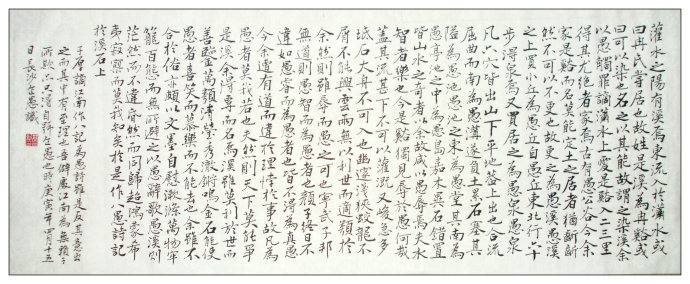 灌水之陽有溪焉東流入于瀟水或
曰冉氏嘗居也故姓是溪為冉溪或
曰可以染也名之以其能故謂之染溪余
以愚觸罪謫瀟水上愛是溪入二三里
得其尤絕者家焉古有愚公谷今余
家是溪而名莫能定士之居者猶齗齗
然不可以不更也故更之為愚溪愚溪
之上買小丘為愚丘自愚丘東北行六十
步得泉焉又買居之為愚泉愚泉
凡六穴皆出山下平地蓋上出也合流
屈曲而南為愚溝遂負土累石塞其
隘為愚池愚池之東為愚堂其南為
愚亭池之中為愚島嘉木異石錯置
皆山水之奇者以余故咸以愚辱焉夫水
智者樂也今是溪獨見辱於愚何哉
蓋其流甚下不可以灌溉又峻急多
坻石大舟不可入也幽邃淺狹蛟龍不
屑不能興雲雨無以利世而適類於
余然則雖辱而愚之可也甯武子邦
無道則愚智而為愚者也顏子終日不
違如愚睿而為愚者也皆不得為真愚
今余遭有道而違於理悖於事故凡為
愚者莫我若也夫然則天下莫能爭
是溪余得專而名焉溪雖莫利於世而
善鑒萬類清瑩秀澈鏘鳴金石能使
愚者喜笑眷慕樂而不能去也余雖不
合於俗亦頗以文墨自慰漱滌萬物牢
籠百態而無所避之以愚辭歌愚溪則
茫然而不違昏然而同歸超鴻蒙混希
夷寂寥而莫我知矣於是作八愚詩記
於溪石上
子厚謫江南作八記為愚詩雖是反其意出
之而其中有至理也吾僻處江南為無
所歟
日長沙愚識